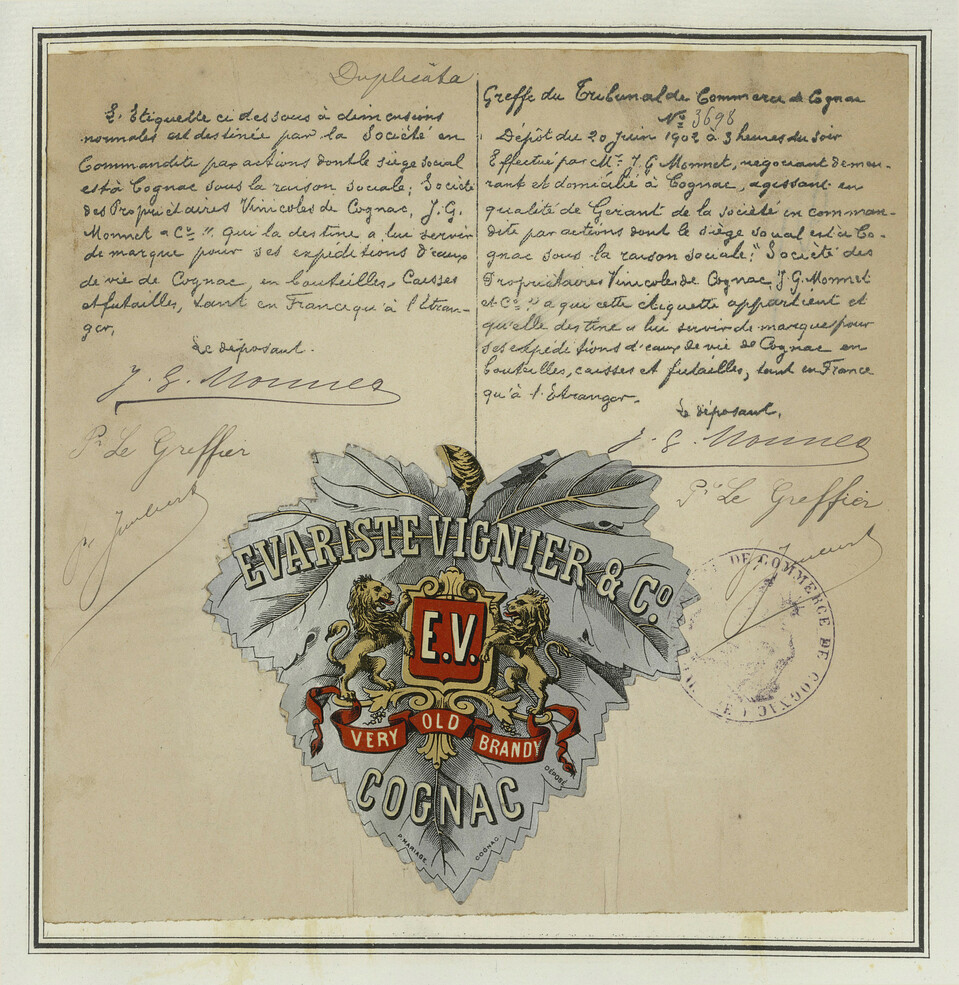 Duplicâta
L'Etiquette ci dessous à dimensions
normales est destinée par la Société en
Commandite par actions dont le siège social
est à Cognac sous la raison sociale; Société
des Propriétaires Vinicoles de Cognac, J.G.
Monnet & Cie ", qui la destine à lui servir
de marque pour ses expéditions d'eaux
de vie de Cognac, en bouteilles, Caisses
et futailles, tant en France qu'à l'Etran-
ger,
Le déposant.
J. G. Monnet
Pr Le Greffier
Greffe du Tribunal de Commerce de Cognac
No 3698
Dépôt du 20 Juin 1902 à 3 heures du soir
Effectué par Mr. J.G Monnet, négociant demeu-
rant et domicilié à Cognac, agissant en
qualité de Gérant de la société en comman-
dite par actions dont le siège social est à Co-
gnac sous la raison sociale: " Société des
Propriétaires Vinicoles de Cognac J.G. Monnet
et Co. " à qui cette étiquette appartient et
qu'elle destine à lui servir de marque pour
ses expéditions d'eaux de vie de Cognac en
bouteilles, caisses et futailles, tant en France
qu'à l'Etranger.
Le déposant,
J. G. Monnet
Pr Le Greffier
EVARISTE VIGNIER & Co.
E.V.
VERY OLD BRANDY
DÉPOSÉ
COGNAC
P. MARIAGE. COGNAC.
DE COMMERCE DE COGNAC